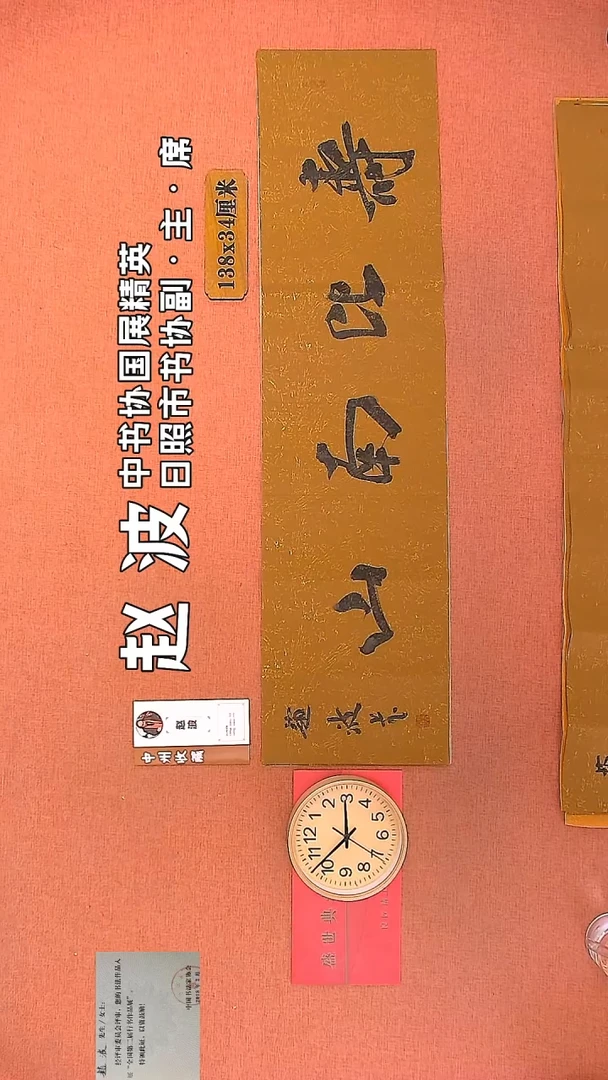 中书协国展精英
赵波 日照市书协副·主·席
138x34厘米
寿比南山
赵波书
赵波
中州收藏
12
1
2
3
4
5
6
7
8
9
10
11
盛世典
赵波 先生/女士:
经评审委员会评审，您的书法作品入
展“全国第二届行书作品展”，
特颁此证，以资鼓励！
中国书法家协会